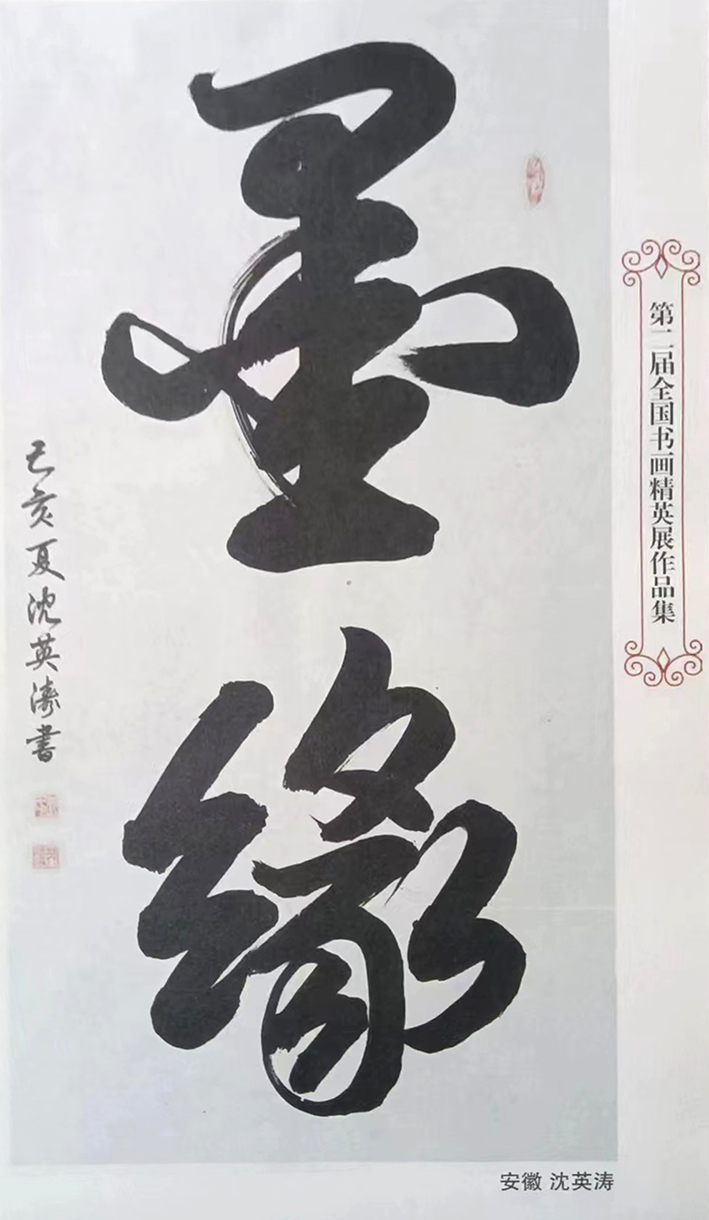 第二届全国书画精英展作品集
墨缘
己亥夏沈英涛書
安徽 沈英涛